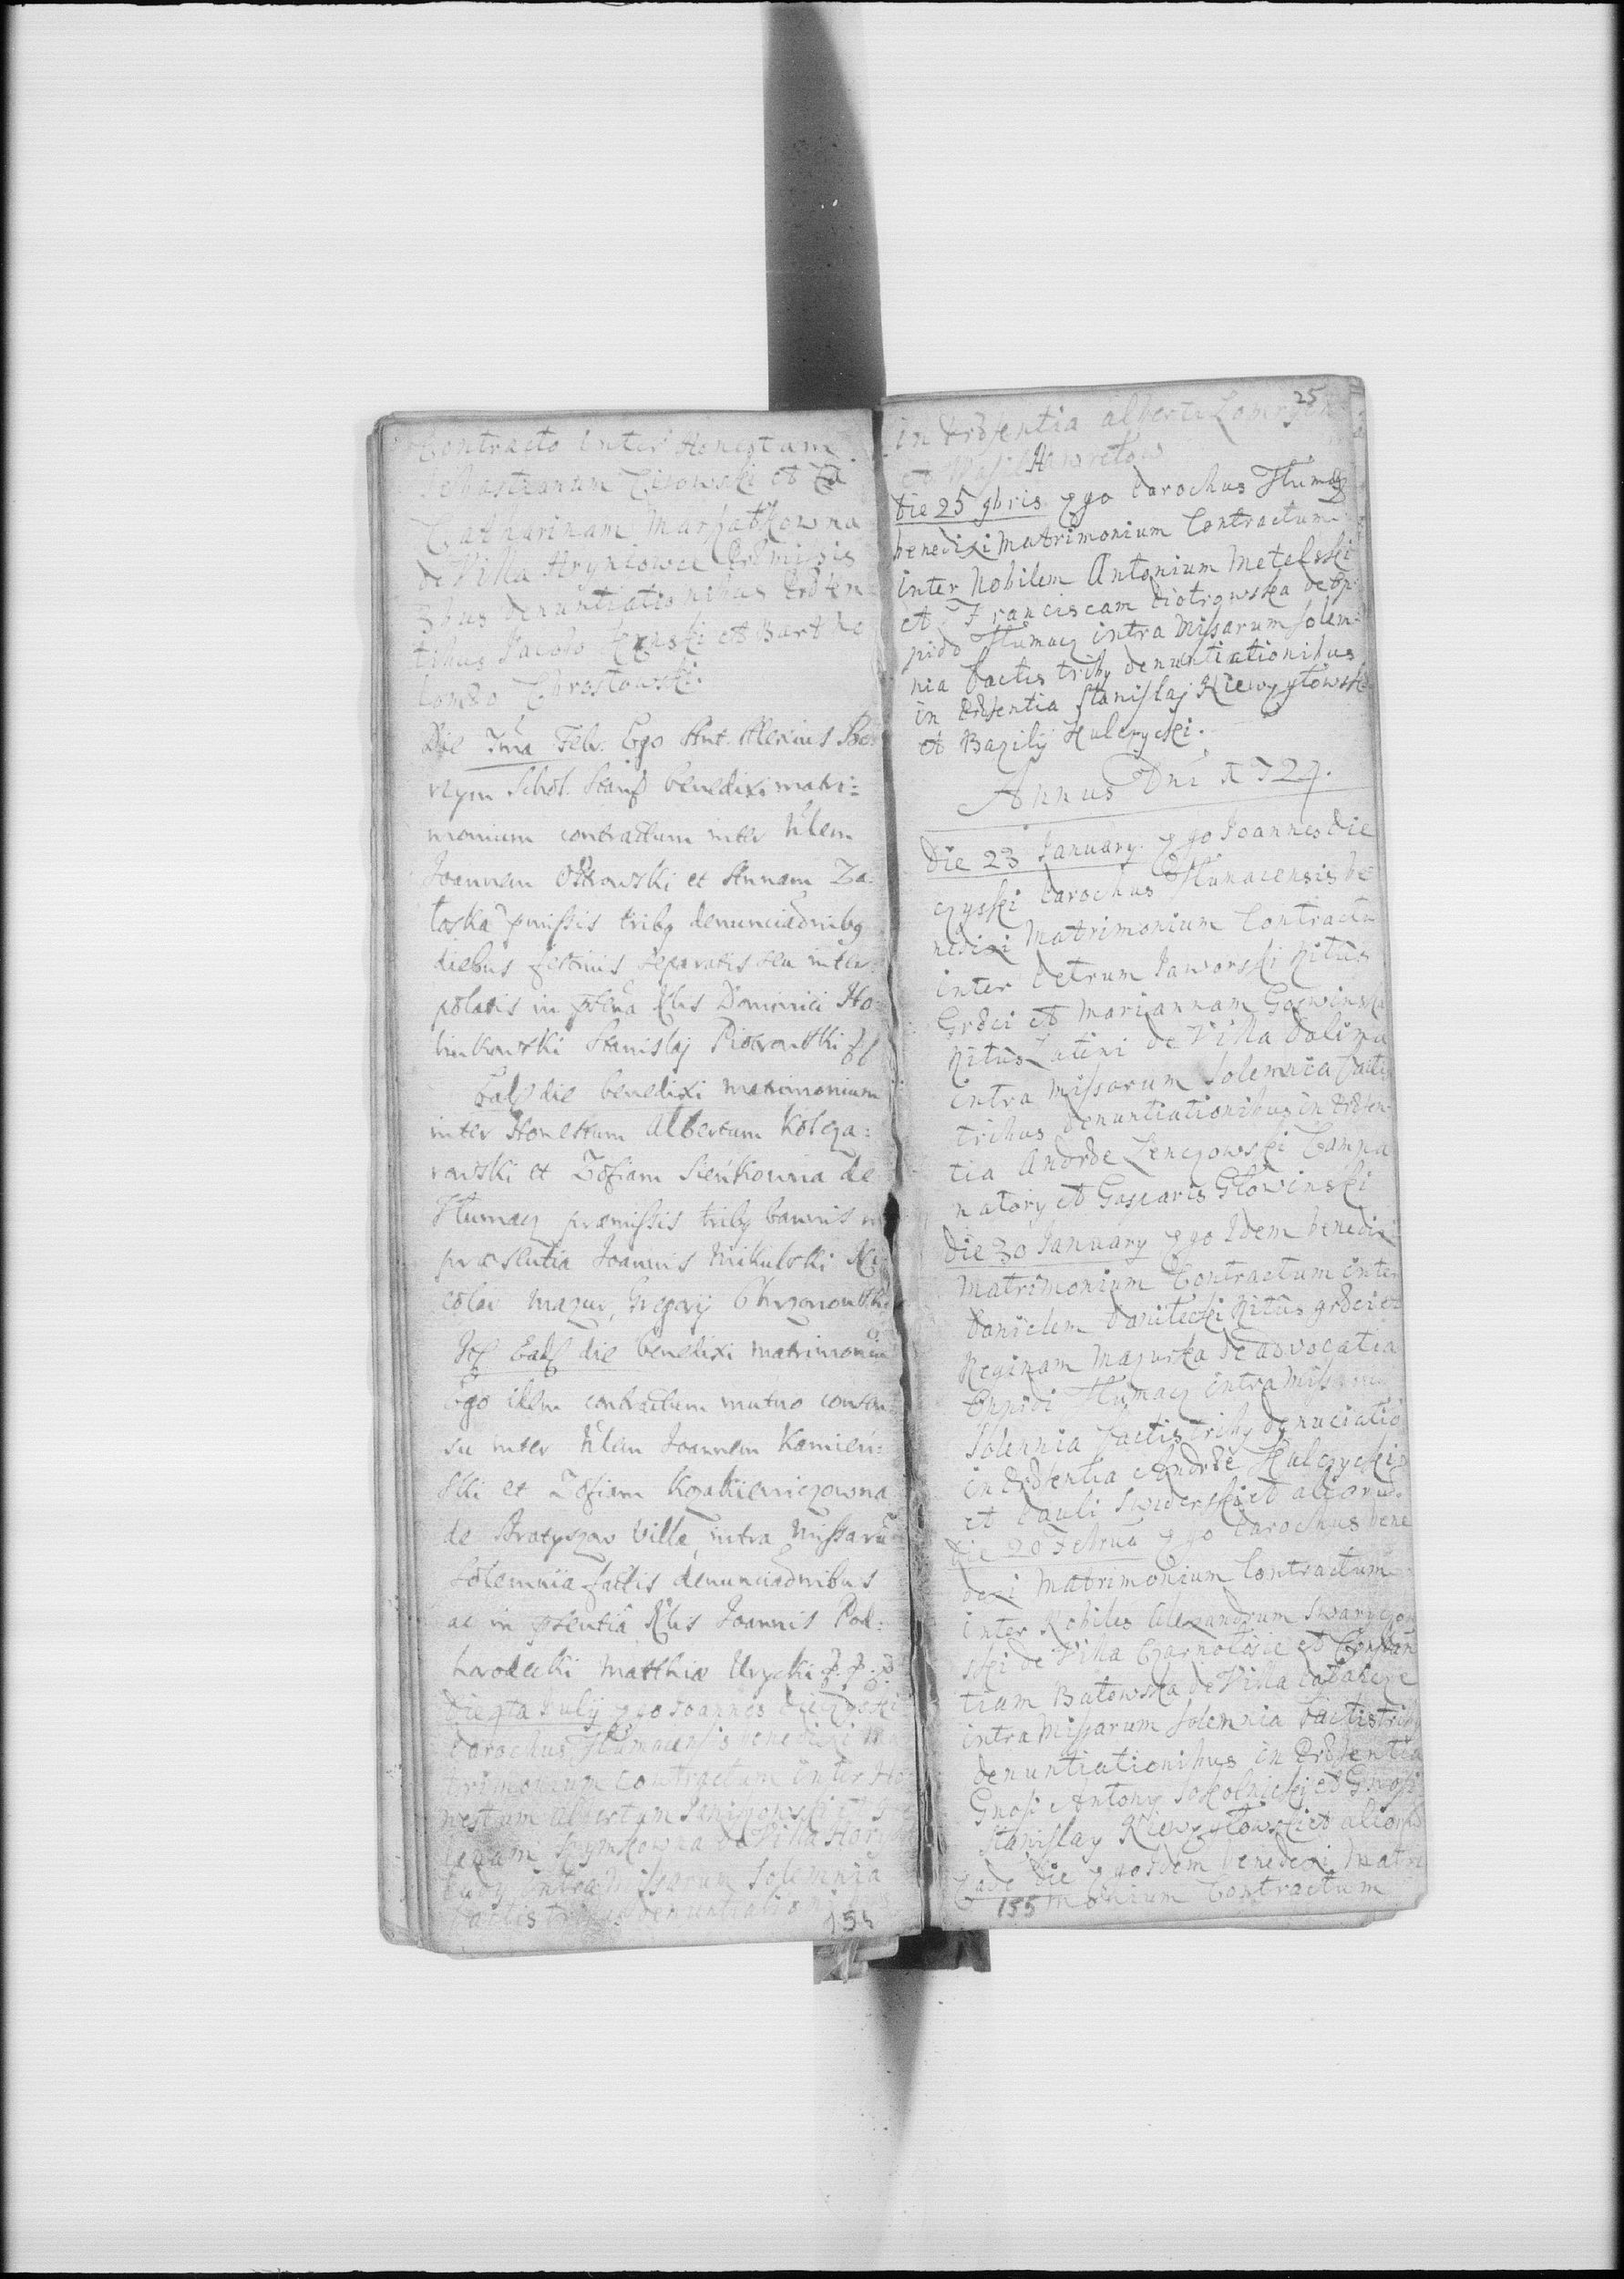 Contracto inter Honestum
Sebastianum Cisowski et
Catharinam
de Villa Hryniowce Præmissis
3bus denuntiationibus Præsen
tibus Jacobo et Bartho
lomæo Chrostowski.
Die Ima Feb. Ego Ant. Alexius
Schol. benedixi matri=
monium contractum inter Nlem
Joannem Ostrowski et Annam Za
łoska pmissis tribq denunciaõnibq
diebus festivis separatis seu inter
polatis in pñtia Nlis Dominici Ho
linkowski Stanislaj Piotrowski
Eadẽ die benedixi matrimonium
inter Honestum Albertum Kolcza=
rowski et Zofiam Sieńkowna de
Tłumacz præmissis tribq bannis in
præsentia Joannis Mikulski Ni
colai Mazur, Gregorij
Eadẽ die benedixi matrimoniũ
Ego idem contractum mutuo consen
su inter Nlem Joannem Kamień=
ski et Zofiam
de Bratyszow Villa, intra Missarũ
solemnia factis denunciaõnibus
ac in pñtentia Nlis Joannis Pod=
horodecki Matthiæ Urycki
Die 9ta Julij Ego Joannes
Parochus Tłumacensis benedixi ma
trimonium contractum inter Ho
nestum Albertum et
de Villa
intra Missarum Solemnia
factis tribus denuntiationibus
154
25
in Præsentia Alberti
et Hawretow
Die 25 9bris Ego Parochus Tłumacz
benedixi Matrimonium Contractum
inter Nobilem Antonium Metelski
et Franciscam Piotrowska de Op
pido Tłumacz intra Missarum solem
nia factis tribq denuntiationibus
in Præsentia Stanislaj
et Bazilij Hulczycki.
Annus Dni 1727.
Die 23 January Ego Joannes Die
czyski Parochus Tłumacensis be
nedixi Matrimonium Contractũ
inter Petrum Jaworski Ritûs
Græci et Mariannam Goswinska
Ritûs Latini de Villa Dolina
intra Missarum Solemnia factis
tribus denuntiationibus in Præsen
tia Andræ Lenczowski Campa
natory et Gasparis Głowinski
Die 30 January Ego Idem benedixi
Matrimonium Contractum inter
Danielem Danilecki Ritûs græci et
Reginam Mazurka de advocatia
Oppidi Tłumacz intra Missarum
Solennia factis tribq denuciatio
in Præsentia Andræ Hulczycki
et Pauli Swiderski et aliorum.
Die 20 Februa Ego Parochus bene
dexi Matrimonium Contractum
inter Nobiles Alexandrum
ski de Villa Czarnolosie et Constan
tiam Batowska de Villa
intra Missarum Solemnia factis tribq
denuntiationibus in Præsentia
Gnosi Antony Sokolnicki et Gnosi
Stanislay et aliorũ
Eadẽ Die Ego Idem benedixi Matri
monium Contractum
155